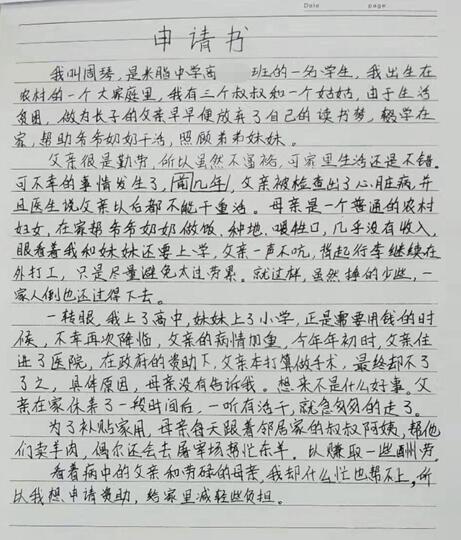 Date page
申请书
我叫周琴，是米脂中学高 班的一名学生，我出生在
农村的一个大家庭里，我有三个叔叔和一个姑姑，由于生活
贫困，做为长子的父亲早早便放弃了自己的读书梦，辍学在
家，帮助爷爷奶奶干活，照顾弟弟妹妹。
父亲很是勤劳，所以虽然不富裕，可家里生活还是不错。
可不幸的事情发生了，前几年，父亲被检查出了心脏病，并
且医生说父亲以后都不能干重活。母亲是一个普通的农村
妇女，在家帮爷爷奶奶做饭、种地、喂牲口，几乎没有收入，
眼看着我和妹妹还要上学，父亲一声不吭，背起行李继续在
外打工，只是尽量避免太过劳累。就这样，虽然挣的少些，一
家人倒也还过得下去。
一转眼，我上了高中，妹妹上了小学，正是需要用钱的时
候，不幸再次降临，父亲的病情加重，今年年初时，父亲住
进了医院，在政府的资助下，父亲本打算做手术，最终却不了
了之，具体原因，母亲没有告诉我。想来不是什么好事。父
亲在家休养了一段时间后，一听有活干，就急匆匆的走了。
为了补贴家用，母亲每天跟着邻居家的叔叔阿姨，帮他
们卖羊肉，偶尔还会去屠宰场帮忙杀羊。以赚取一些酬劳。
看着病中的父亲和劳碌的母亲，我却什么忙也帮不上，所
以我想申请资助，给家里减轻些负担。